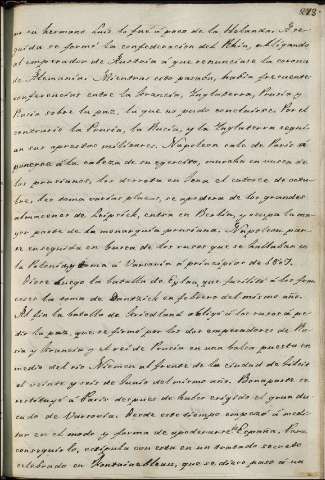 213.
su hermano Luis lo fue a poco de la Holanda. A se-
guida se formó la confederacion del Rhin, obligando
al emperador de Austria a que renunciase la corona
de Alemania. Mientras esto pasaba, habia frecuentes
conferencias entre la Francia, Inglaterra, Prusia y
Rusia sobre la paz, la que no pudo concluirse. Por el
contrario la Prusia, la Rusia, y la Inglaterra seguian
sus aprestos militares. Napoleon sale de Paris á
ponerse á la cabeza de su egercito, marcha en busca de
los prusianos, los derrota en Jena el catorce de octu-
bre, les toma varias plazas, se apodera de los grandes
almacenes de Leipsick, entra en Berlin, y ocupa la ma-
yor parte de la monarquia prusiana. Napoleon par-
te enseguida en busca de los rusos que se hallaban en
la Polonia, y toma á Varsovia á principios de 1807.
Diose luego la batalla de Eylau, que facilitó á los fran-
ceses la toma de Dantzick en febrero del mismo año.
Al fin la batalla de Friedland obligó á los rusos á pe-
dir la paz, que se firmó por los dos emperadores de Ru-
sia y Francia y el rei de Prusia en una balsa puesta en
medio del rio Niemen al frente de la ciudad de Tilsit
el veinte y seis de Junio del mismo año. Bonaparte se
restituyó á Paris despues de haber erigido el gran du-
cado de Varsovia. Desde este tiempo empezó á medi-
tar en el modo y forma de apoderarse de España. Para
conseguirlo, estipula con esta en un tratado secreto
celebrado en Fontainebleau, que se diera paso á un